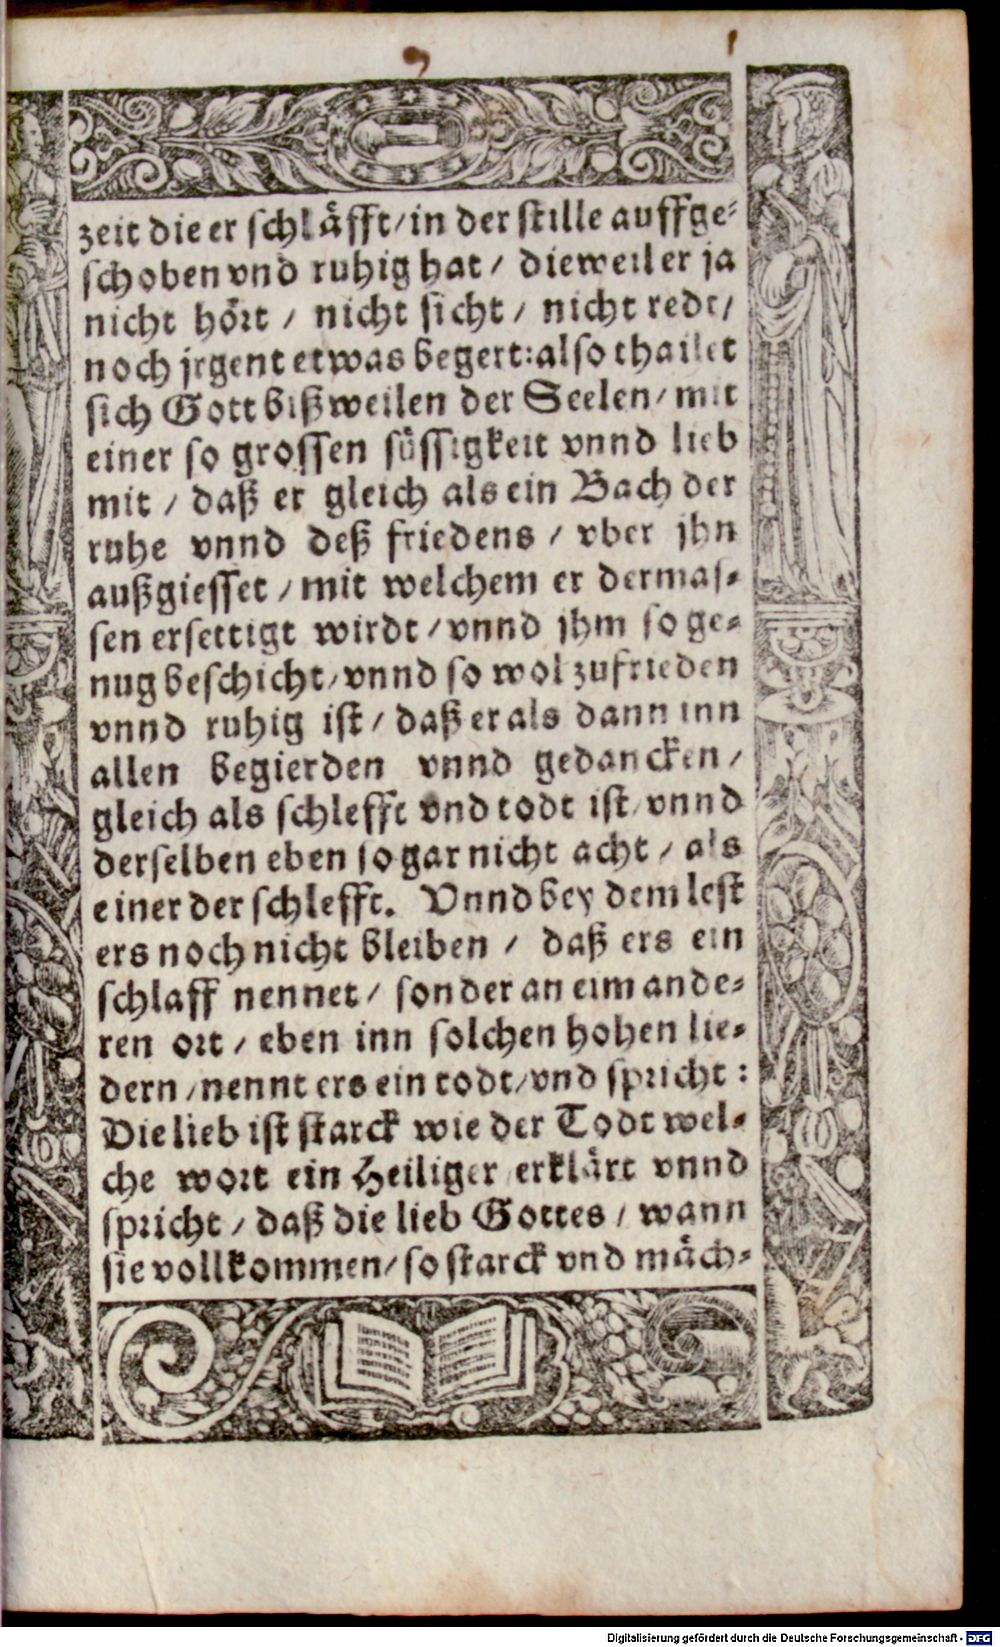 zeit die er schläfft/ in der stille auffge-
schoben vnd ruhig hat / dieweil er ja
nicht hört / nicht sicht / nicht redt/
noch jrgent etwas begert: also thailet
sich Gott bißweilen der Seelen/ mit
einer so grossen süssigkeit vnnd lieb
mit / daß er gleich als ein Bach der
ruhe vnnd deß friedens / vber jhn
außgiesset / mit welchem er dermas-
sen ersettigt wirdt / vnnd jhm so ge-
nug beschicht/ vnnd so wol zufrieden
vnnd ruhig ist / daß er als dann inn
allen begierden vnnd gedancken /
gleich als schlefft vnd todt ist/ vnnd
derselben eben so gar nicht acht / als
einer der schlefft. Vnnd bey dem lest
ers noch nicht bleiben / daß ers ein
schlaff nennet / sonder an eim ande-
ren ort / eben inn solchen hohen lie-
dern / nennt ers ein todt/ vnd spricht :
Die lieb ist starck wie der Todt wel-
che wort ein Heiliger erklärt vnnd
spricht / daß die lieb Gottes / wann
sie vollkommen/ so starck vnd mäch-
Digitalisierung gefördert durch die Deutsche Forschungsgemeinschaft - DFG